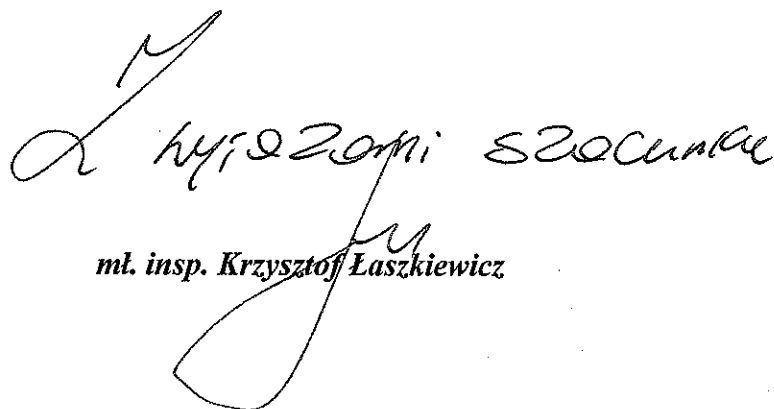 Z wyrazami szacunku
mł. insp. Krzysztof Łaszkiewicz